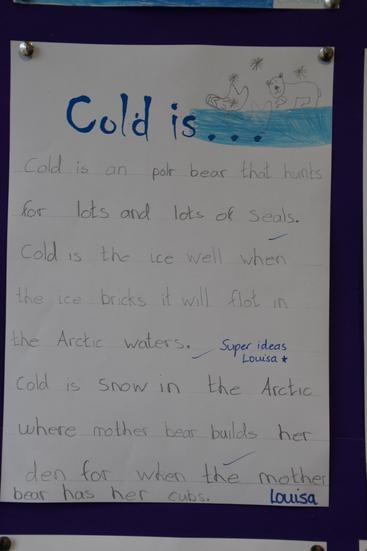 Cold is...
Cold is an polr bear that hunts
for lots and lots of seals.
Cold is the ice well when
the ice bricks it will flot in
the Arctic waters.
Super ideas
Louisa
Cold is snow in the Arctic
where mother bear builds her
den for when the mother
bear has her cubs.
Louisa